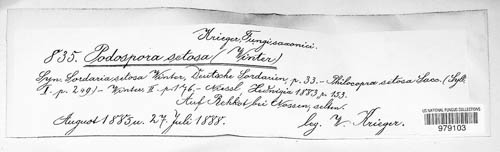 Krieger, Fungi saxonici.
835. Podospora setosa (Winter)
Syn. Sordaria setosa Winter, Deutsche Sordarien, p. 33. - Philocopra setosa Sacc. (Syll.
I. p. 249) - Winter, II. p. 176, - Niessl, Hedwigia 1883, p. 153.
Auf Rehkot bei Nossen, selten.
August 1883, u. 27. Juli 1888.
leg. W. Krieger.
US NATIONAL FUNGUS COLLECTIONS
979103